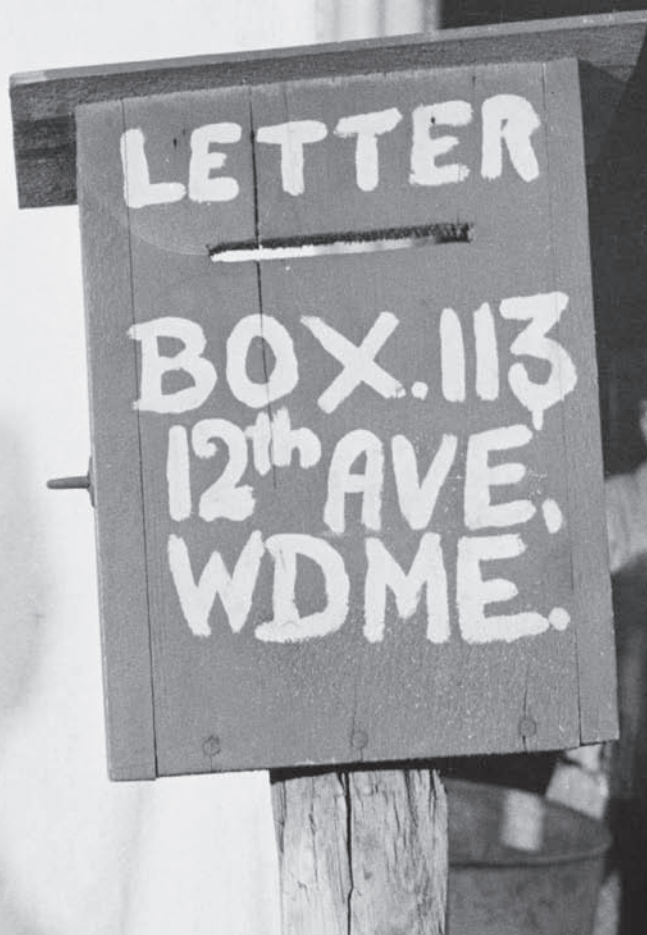 LETTER
BOX.113
12th AVE,
WDME.